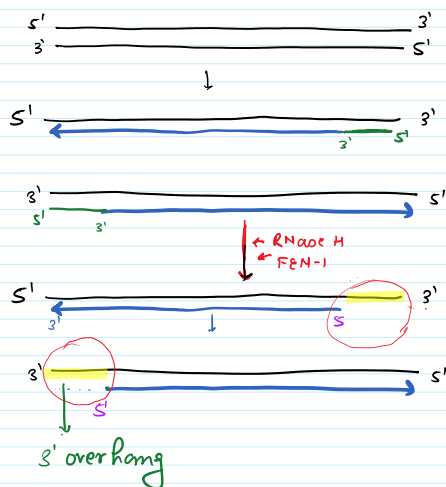 5' 3'
3' 5'
5' 3'
3' 5'
3' 5'
5' 3'
RNase H
FEN-1
5' 3'
3' 5
3' 5'
5'
3' overhang